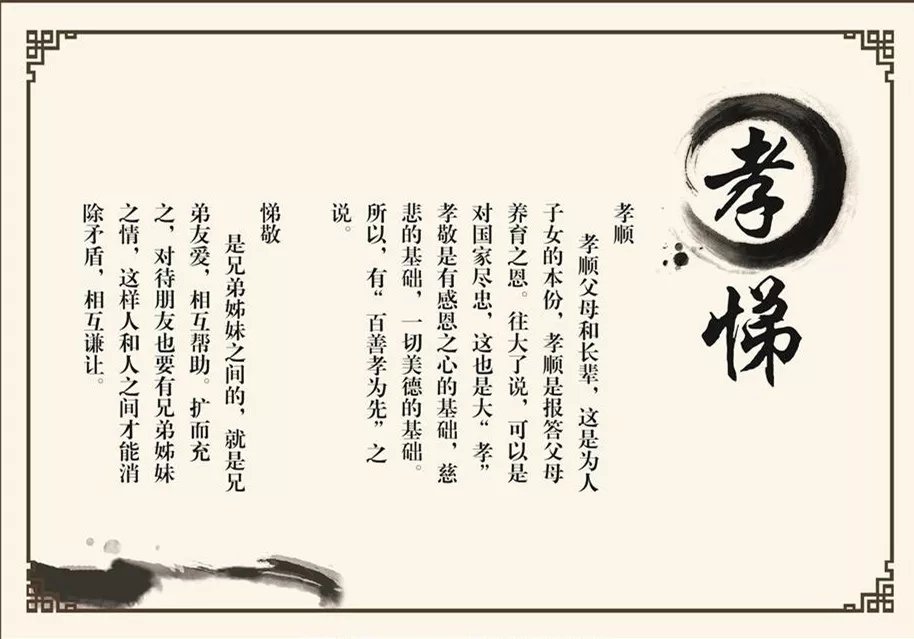 孝悌
孝顺
孝顺父母和长辈，这是为人
子女的本份，孝顺是报答父母
养育之恩。往大了说，可以是
对国家尽忠，这也是大“孝”
孝敬是有感恩之心的基础，慈
悲的基础，一切美德的基础。
所以，有“百善孝为先”之
说。
悌敬
是兄弟姊妹之间的，就是兄
弟友爱，相互帮助。扩而充
之，对待朋友也要有兄弟姊妹
之情，这样人和人之间才能消
除矛盾，相互谦让。